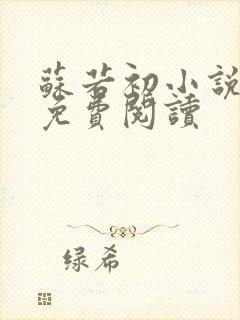 蘇若初小說
免費閱讀
绿希